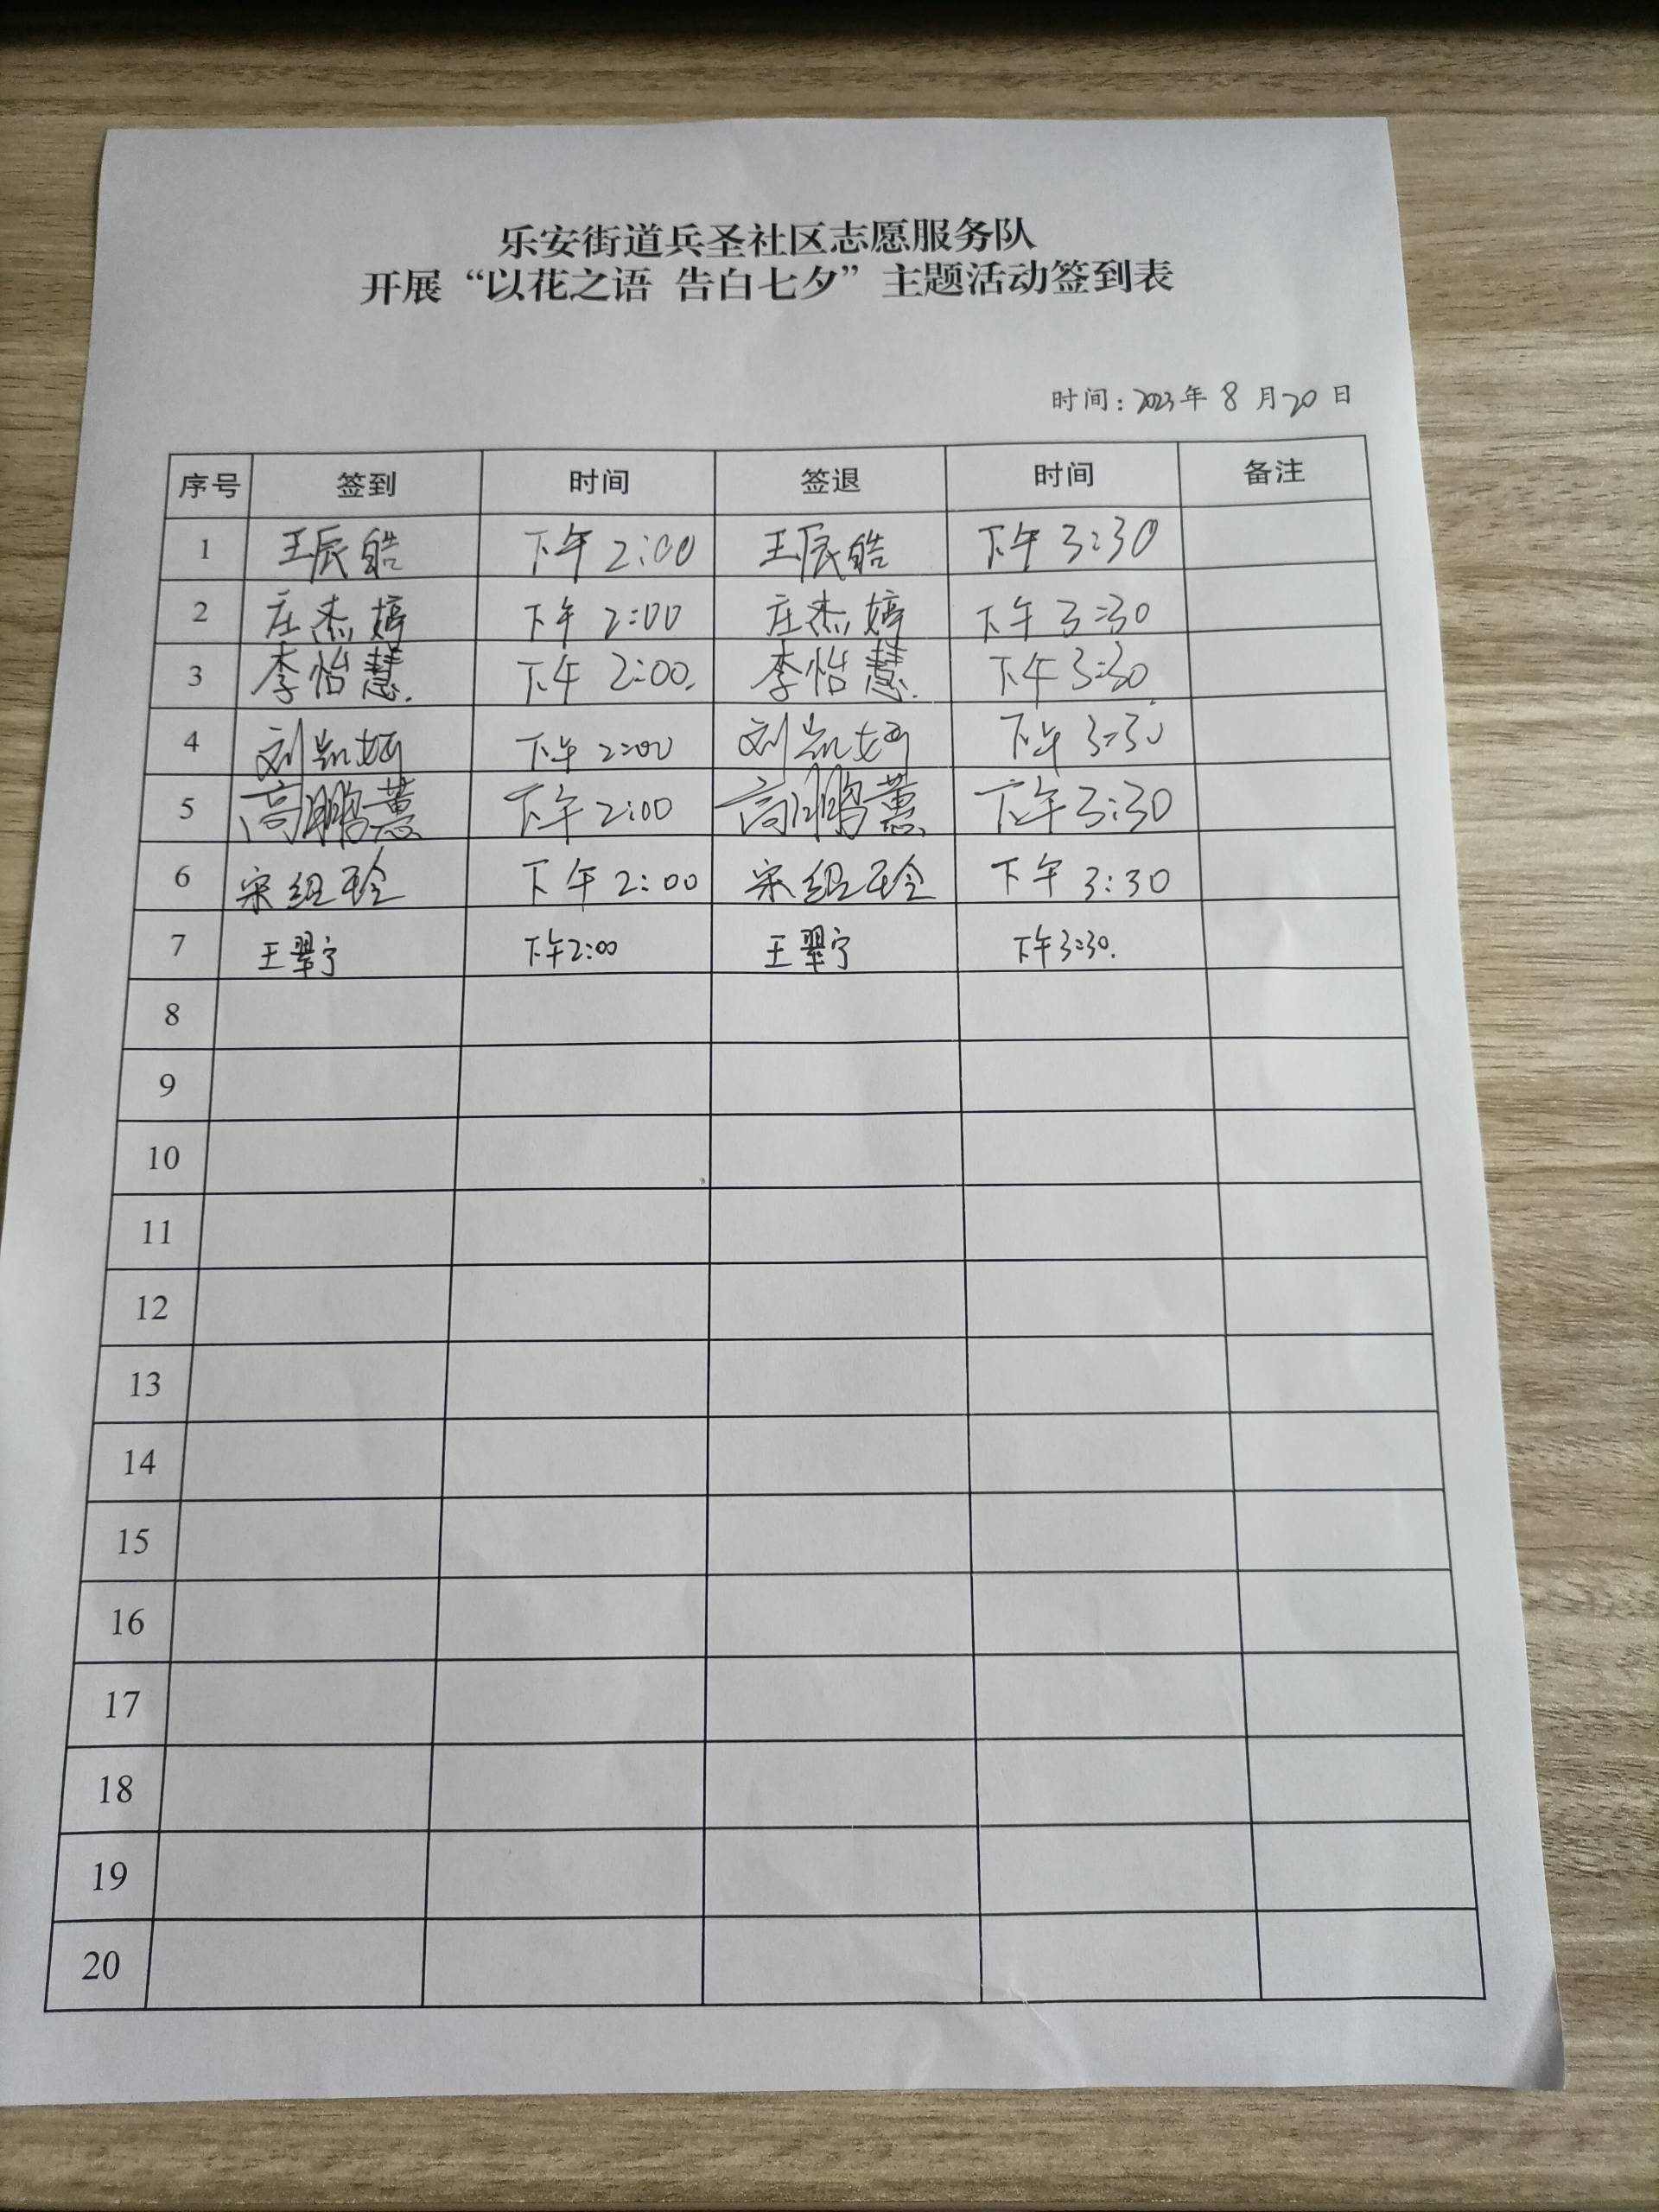 乐安街道兵圣社区志愿服务队
开展“以花之语 告白七夕”主题活动签到表
时间：2023年 8 月20日
序号 签到 时间 签退 时间 备注
1 王辰皓 下午 2:00 王辰皓 下午 3:30
2 庄杰婷 下午 2:00 庄杰婷 下午 3:30
3 李怡慧. 下午 2:00. 李怡慧. 下午 3:30
4 刘凯 下午 2:00 刘凯 下午 3:30
5 高鹏蕙 下午 2:00 高鹏蕙 下午 3:30
6 宋纽玲 下午 2:00 宋纽玲 下午 3:30
7 王翠宁 下午2:00 王翠宁 下午3:30.
8
9
10
11
12
13
14
15
16
17
18
19
20